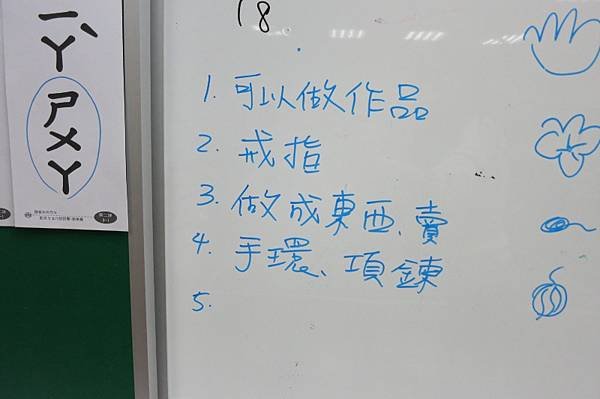 ㄧˋ
ㄚ
ㄕ
ㄨ
ㄚ
18
1. 可以做作品
2. 戒指
3. 做成東西、賣
4. 手環、項鍊
5.